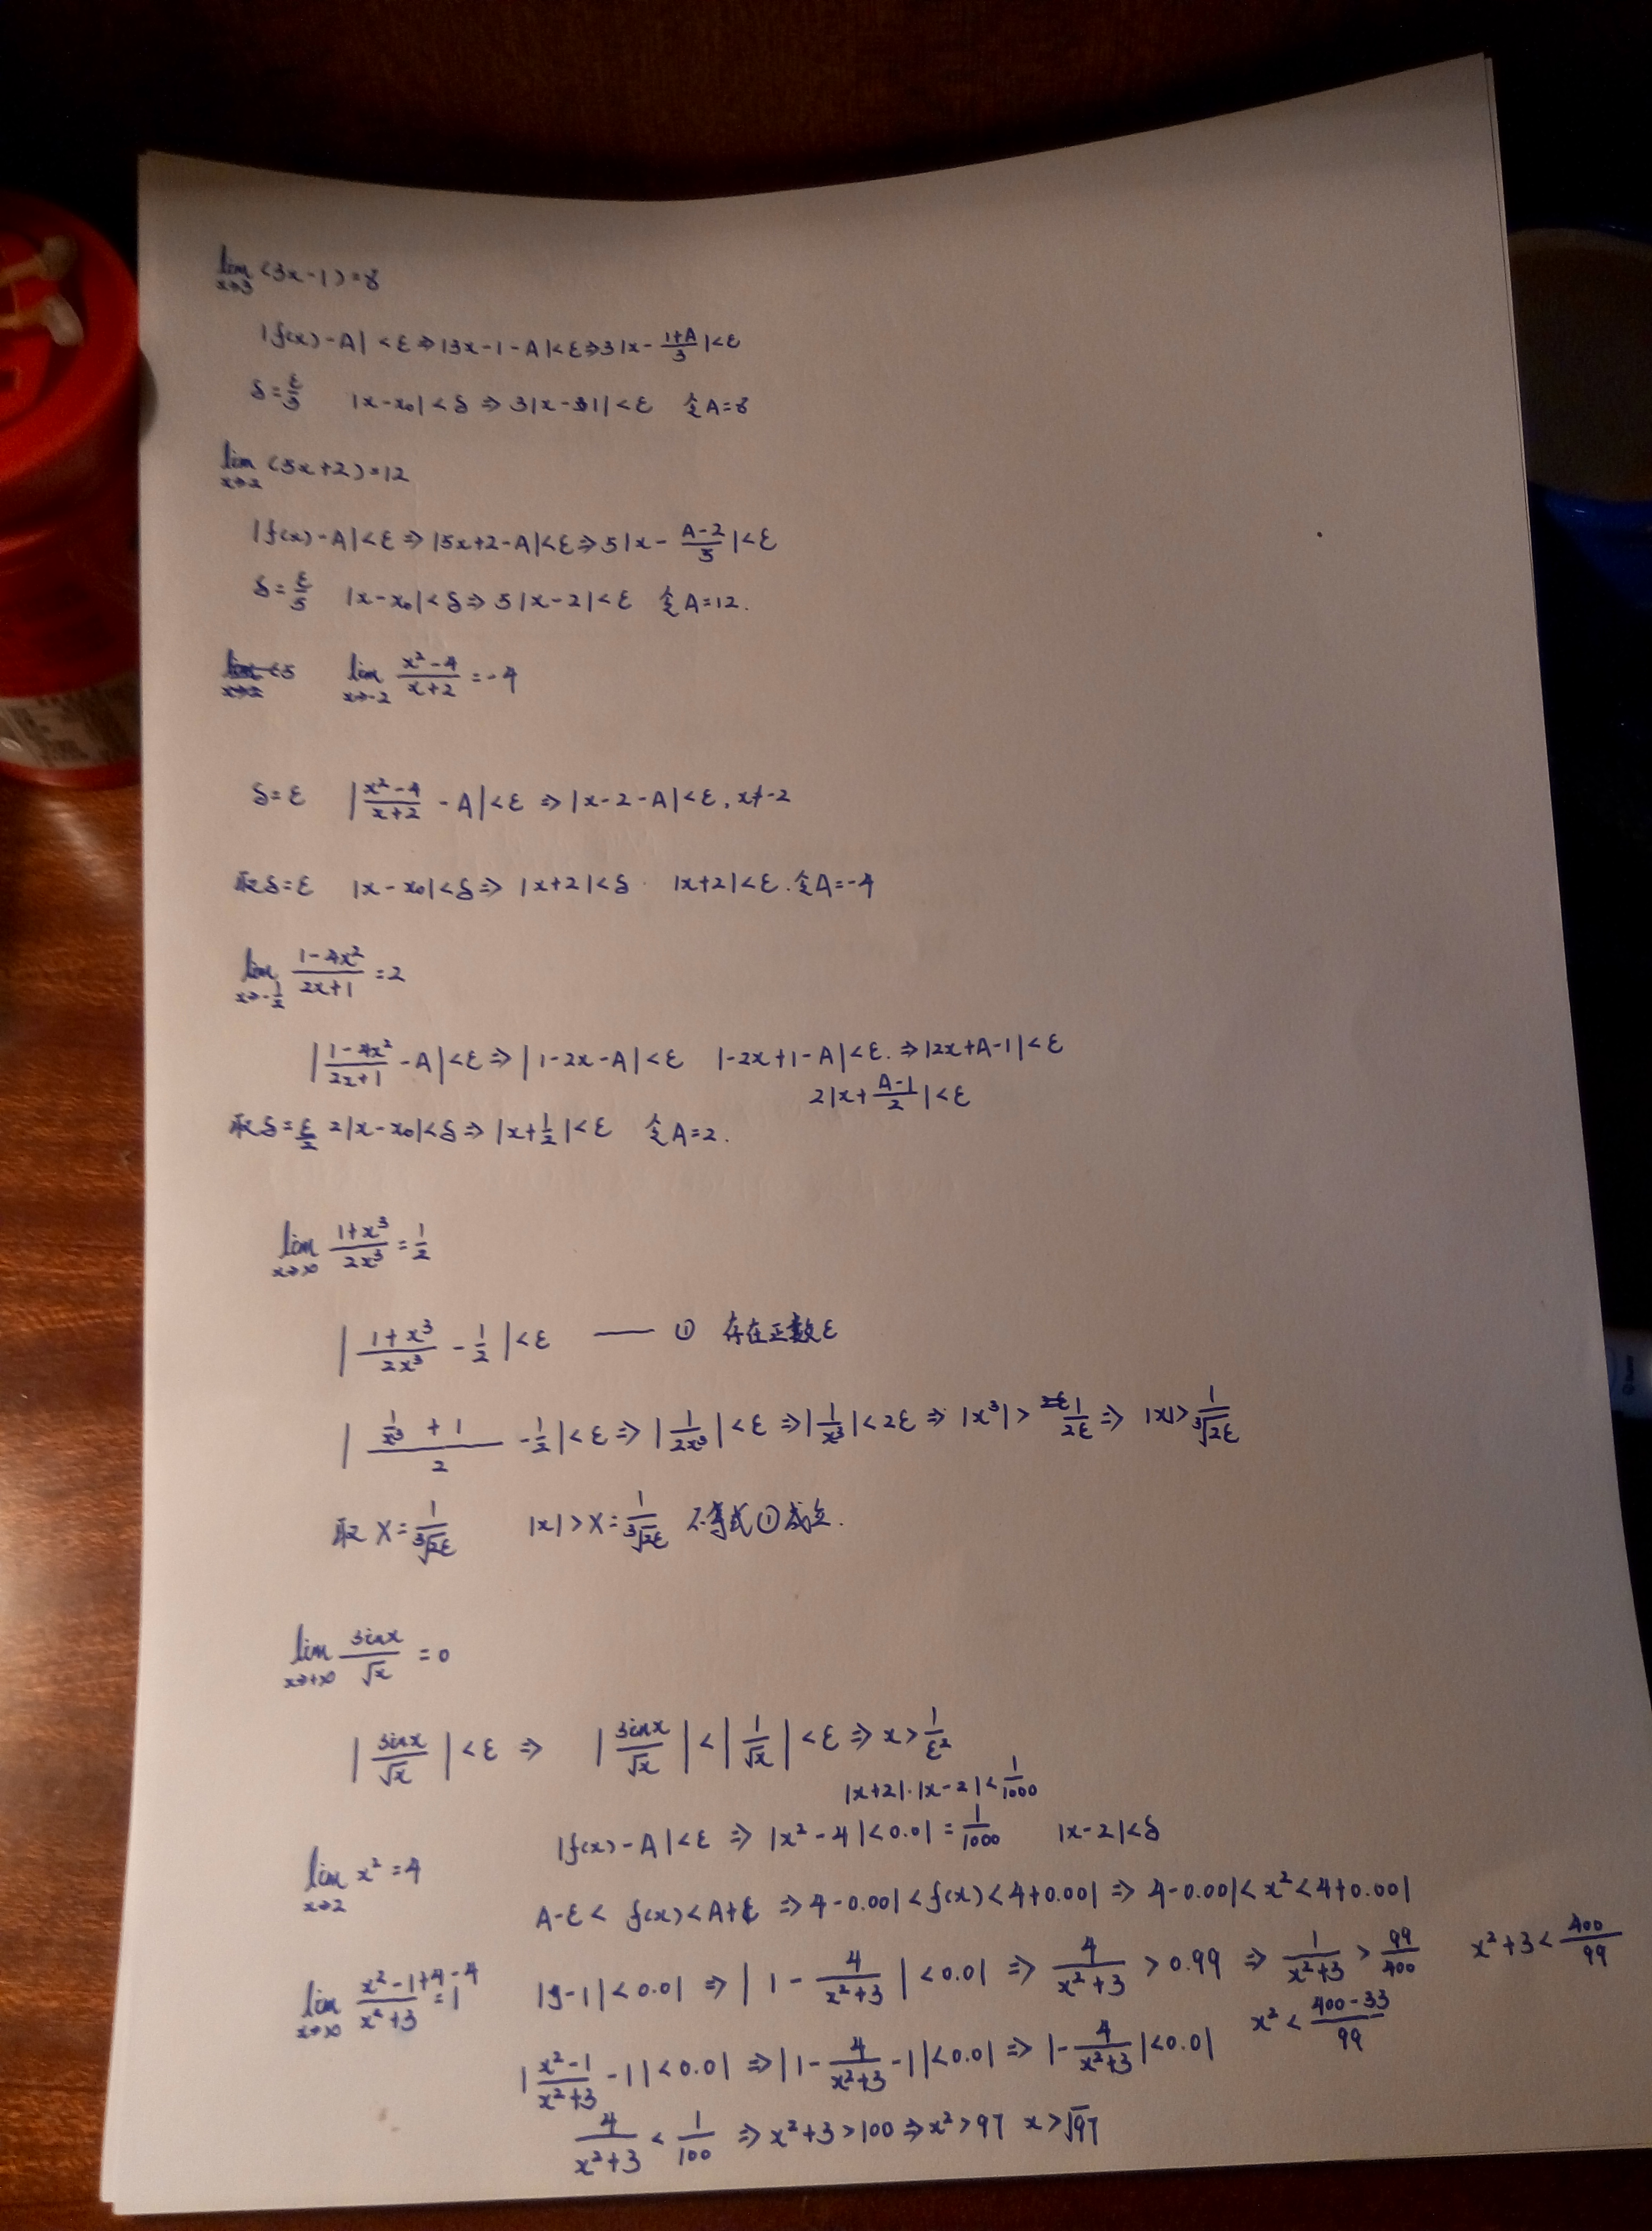 lim x→3 (3x-1)=8
|f(x)-A|<ε⇒|3x-1-A|<ε⇒3|x-(1+A)/3|<ε
δ=ε/3 |x-x₀|<δ⇒3|x-3|<ε 令A=8
lim x→2 (5x+2)=12
|f(x)-A|<ε⇒|5x+2-A|<ε⇒5|x-(A-2)/5|<ε
δ=ε/5 |x-x₀|<δ⇒5|x-2|<ε 令A=12.
lim x→-2 (x²-4)/(x+2)=-4
δ=ε |(x²-4)/(x+2)-A|<ε⇒|x-2-A|<ε, x≠-2
取δ=ε |x-x₀|<δ⇒|x+2|<δ. |x+2|<ε. 令A=-4
lim x→-1/2 (1-4x²)/(2x+1)=2
|(1-4x²)/(2x+1)-A|<ε⇒|1-2x-A|<ε |-2x+1-A|<ε.⇒|2x+A-1|<ε
2|x+(A-1)/2|<ε
取δ=ε/2 2|x-x₀|<δ⇒|x+1/2|<ε 令A=2.
lim x→∞ (1+x³)/(2x³)=1/2
|(1+x³)/(2x³)-1/2|<ε —— ① 存在正数ε
|(1/x³+1)/2-1/2|<ε⇒|1/(2x³)|<ε⇒|1/x³|<2ε⇒|x³|>1/(2ε)⇒|x|>1/∛(2ε)
取X=1/∛(2ε) |x|>X=1/∛(2ε) 不等式①成立.
lim x→+∞ sinx/√x=0
|sinx/√x|<ε⇒ |sinx/√x|<|1/√x|<ε⇒x>1/ε²
|x+2|·|x-2|<1/1000
|f(x)-A|<ε⇒|x²-4|<0.01=1/1000 |x-2|<δ
lim x→2 x²=4
A-ε<f(x)<A+ε⇒4-0.001<f(x)<4+0.001⇒4-0.001<x²<4+0.001
lim x→∞ (x²-1+4-4)/(x²+3)=1 |y-1|<0.01⇒|1-4/(x²+3)|<0.01⇒4/(x²+3)>0.99⇒1/(x²+3)>99/400 x²+3<400/99
x²<(400-33)/99
|(x²-1)/(x²+3)-1|<0.01⇒|1-4/(x²+3)-1|<0.01⇒|-4/(x²+3)|<0.01
4/(x²+3)<1/100⇒x²+3>100⇒x²>97 x>√97